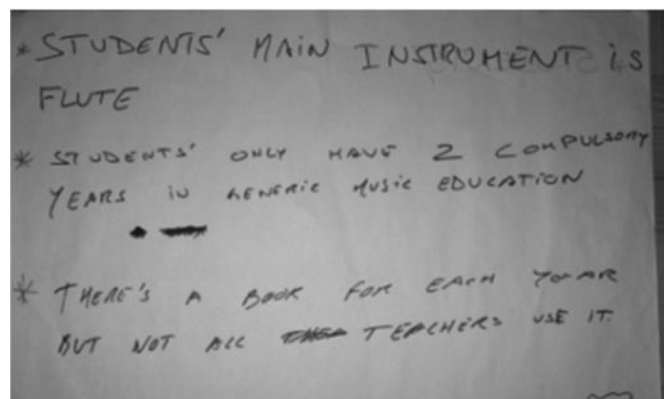 * STUDENTS' MAIN INSTRUMENT iS
FLUTE
* STUDENTS' ONLY HAVE 2 COMPULSORY
YEARS iN GENERiC MUSiC EDUCATION
* THERE'S A BOOK FOR EACH YEAR
BUT NOT ALL TEACHERS USE IT.